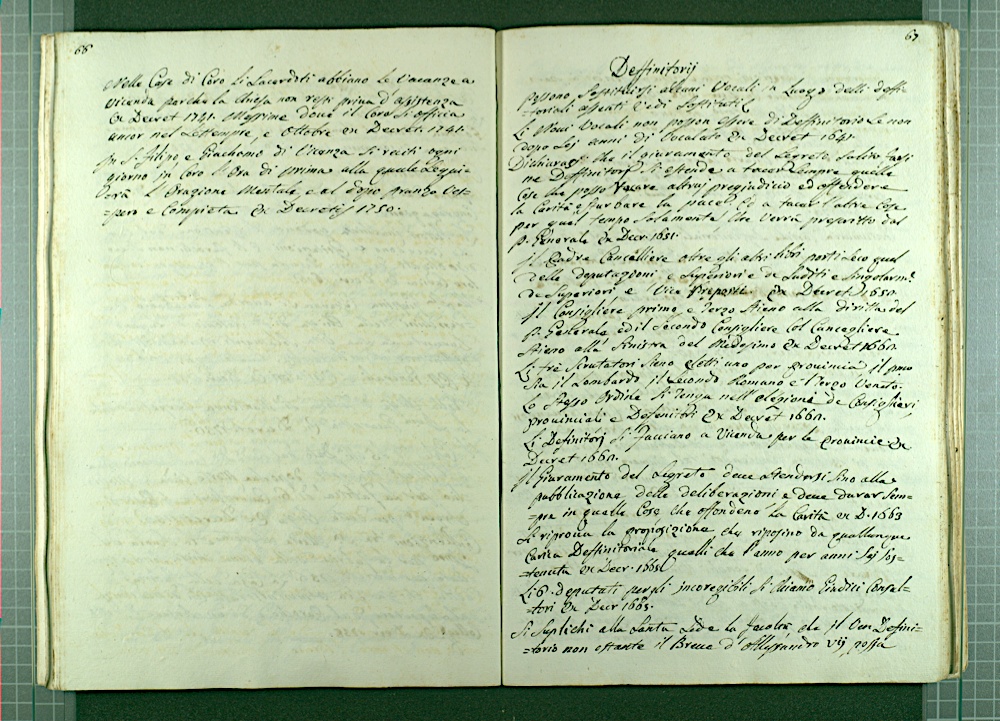 66
Nelle Case di Coro li Sacerdoti abbiano le Vacanze a
vicenda parchè la chiesa non resti priva d'assistenza
Ex Decret 1741. Massime dove il Coro si officia
ancor nel Settempre, e Ottobre ex Decret. 1741.
In S. Filipo, e Giachomo di Vicenza si reciti ogni
giorno in Coro l'Ora di prima alla quale seguitarà
l'Orazione Mentale, e al dopo pranzo Ves-
=pero e Compieta Ex Decretis 1750.
67
Deffinitorij
Possono sostituirsi alcuni Vocali in Luogo delli deffi-
toriali assenti Vedi Sostituti
Li Novi Vocali non posson essere di Deffinitorio se non
dopo sej anni di Vocalato Ex Decret 1641.
Dichiarasi che il giuramento del Segreto solito farsi
ne Deffinitorj si estende a tacer sempre quelle
Cose che posso recare altrui pregiudicio ed offendere
la Carità o turbare la pace. E a tacer l'altre Cose
per quel tempo solamente che verrà prescritto dal
P. Generale Ex Decr. 1651.
Il Padre Cancelliere oltre gli altri libri porti seco quel
delle deputazioni e Superiori e de Suditi e Singolarm.e
de Superiori e Vice Preposti. Ex Decret 1650.
Il Consigliere primo, e Terzo stieno alla diritta del
P. Generale ed il Secondo Consigliere col Cancegliere
stieno alla sinistra del Medesimo Ex Decret 1660.
Li trè Scrutatori sieno eletti uno per provincia il pmo
sia il Lombardo il secondo Romano e l'Terzo Veneto.
Lo stesso Ordine si tenga nell'elezione de Consiglieri
provinciali e Defenitori Ex Decret 1660.
Li Definitorj si facciano a Vicenda per le Provincie Ex
Decret 1660.
Il Giuramento del Segreto deve stendersi sino alla
pubblicazione delle deliberazioni e deve durar sem-
=pre in quelle Cose che offendeno la Carità ex D. 1663
Si riprova la proposizione che riposino da quallunque
Carica Deffinitoriale quelli che l'anno per anni sej sos-
=tenuta Ex Decr. 1665
Li 6. Deputati per gli incoregibili si chiamo Giudici Consul-
=tori Ex Decr 1665.
Si suplichi alla Santa Sede la facoltà, che il Ven Defini-
=torio non ostante il Breve d'Allessandro VIJ possa